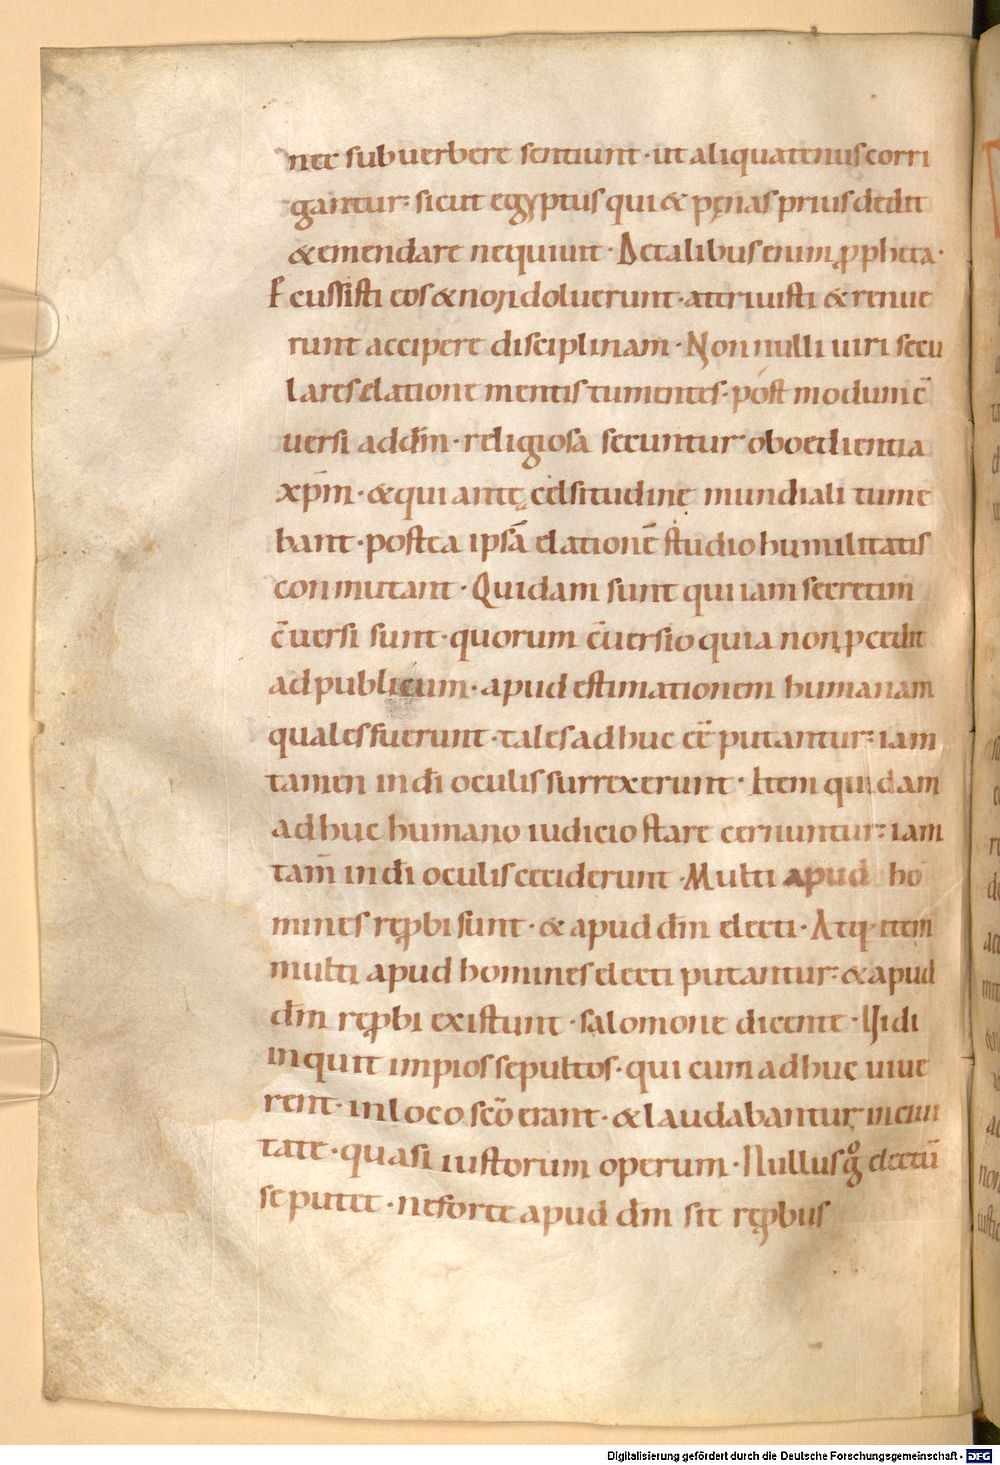 nec sub uerbere sentiunt · ut aliquatenus corri
gantur: sicut egyptus qui & pęnas prius dedit
& emendare nequiuit · De talibus enim ꝓpheta ·
Pcussisti eos & non doluerunt · attriuisti & renue
runt accipere disciplinam · Non nulli uiri secu
lares elatione mentis tumentes · post modum c̄
uersi ad dm̄ · religiosa secuntur oboedientia
xp̄m · & qui ante celsitudine mundiali tume
bant · postea ipsā elationē studio humilitatis
conmutant · Quidam sunt qui iam secretim
c̄uersi sunt · quorum c̄uersio quia non ꝓcedit
ad publicum · apud estimationem humanam
quales fuerunt · tales adhuc eē putantur: iam
tamen in dī oculis surrexerunt · Item quidam
adhuc humano iudicio stare cernuntur: iam
tam̄ in dī oculis ceciderunt · Multi apud ho
mines reꝓbi sunt · & apud dm̄ electi · Atq· item
multi apud homines electi putantur: & apud
dm̄ reꝓbi existunt · salomone dicente · Uidi
inquit impios sepultos · qui cum adhuc uiue
rent · in loco scō erant · & laudabantur in ciui
tate · quasi iustorum operum · Nullus gͦ electū
se putet · ne forte apud dm̄ sit reꝓbus
Digitalisierung gefördert durch die Deutsche Forschungsgemeinschaft - DFG